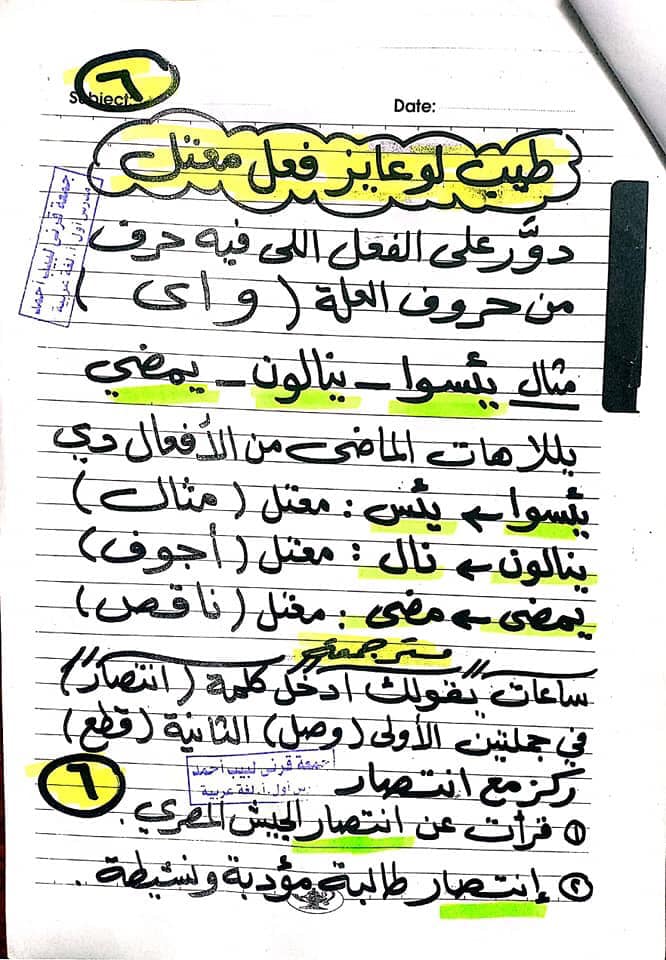 ٦
Subject:
Date:
طيب لو عايز فعل معتل
جمعة قرني لبيب أحمد
مدرس أول أ. لغة عربية
دوَّر على الفعل اللى فيه حرف
من حروف العلة ( و ا ى )
مثال يئسوا - ينالون - يمضي
يللا هات الماضى من الأفعال دي
يئسوا ← يئس : معتل ( مثال )
ينالون ← نال : معتل ( أجوف )
يمضى ← مضى : معتل ( ناقص )
مستر جمعة
ساعات يقولك ادخل كلمة ( انتصار )
في جملتين الأولى ( وصل ) الثانية ( قطع )
جمعة قرنى لبيب أحمد
مدرس أول أ. لغة عربية
٦
ركز مع انتصار
① قرأت عن انتصار الجيش المصري .
② إنتصار طالبة مؤدبة ونشيطة .